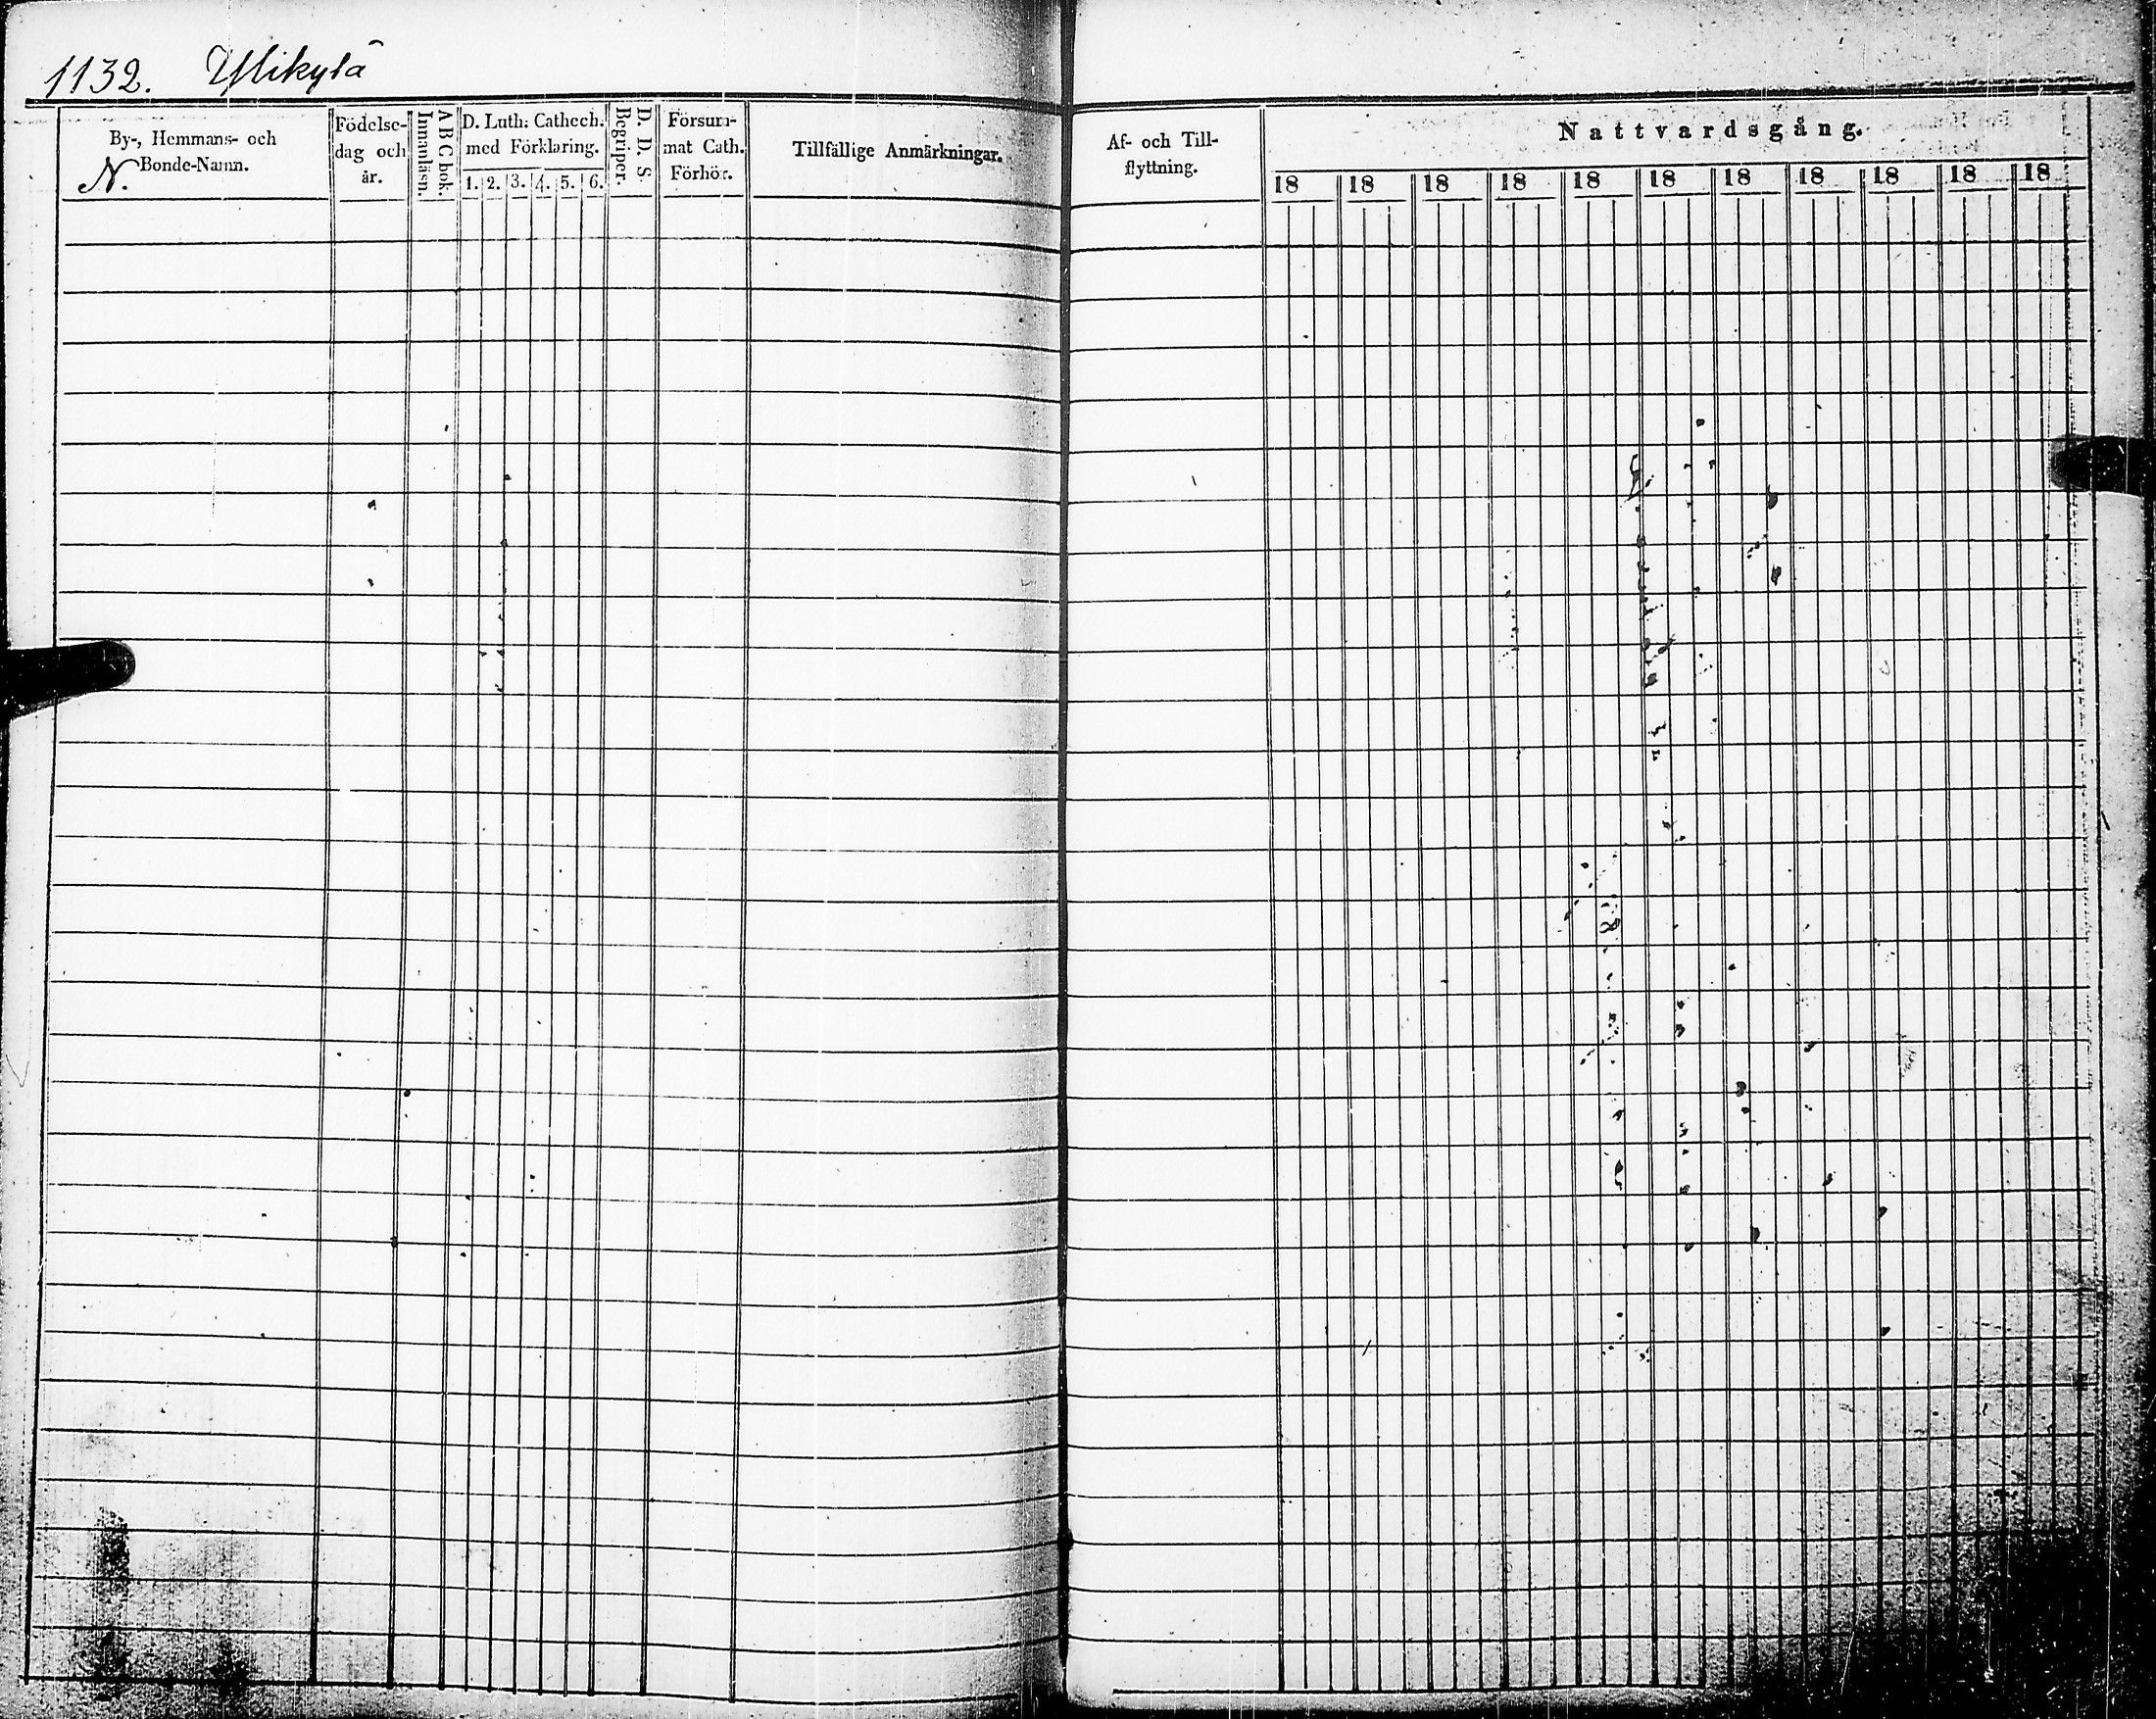 1132. Ylikylä
By-, Hemmans- och
N. Bonde-Namn.
Födelse-
dag och
år.
A B C bok.
Innanläsn.
D. Luth: Cathech.
med Förklaring.
1. 2. 3. 4. 5. 6.
D. D. S.
Begriper.
Försum-
mat Cath.
Förhör.
Tillfällige Anmärkningar.
Af- och Till-
flyttning.
Nattvardsgång.
18 18 18 18 18 18 18 18 18 18 18